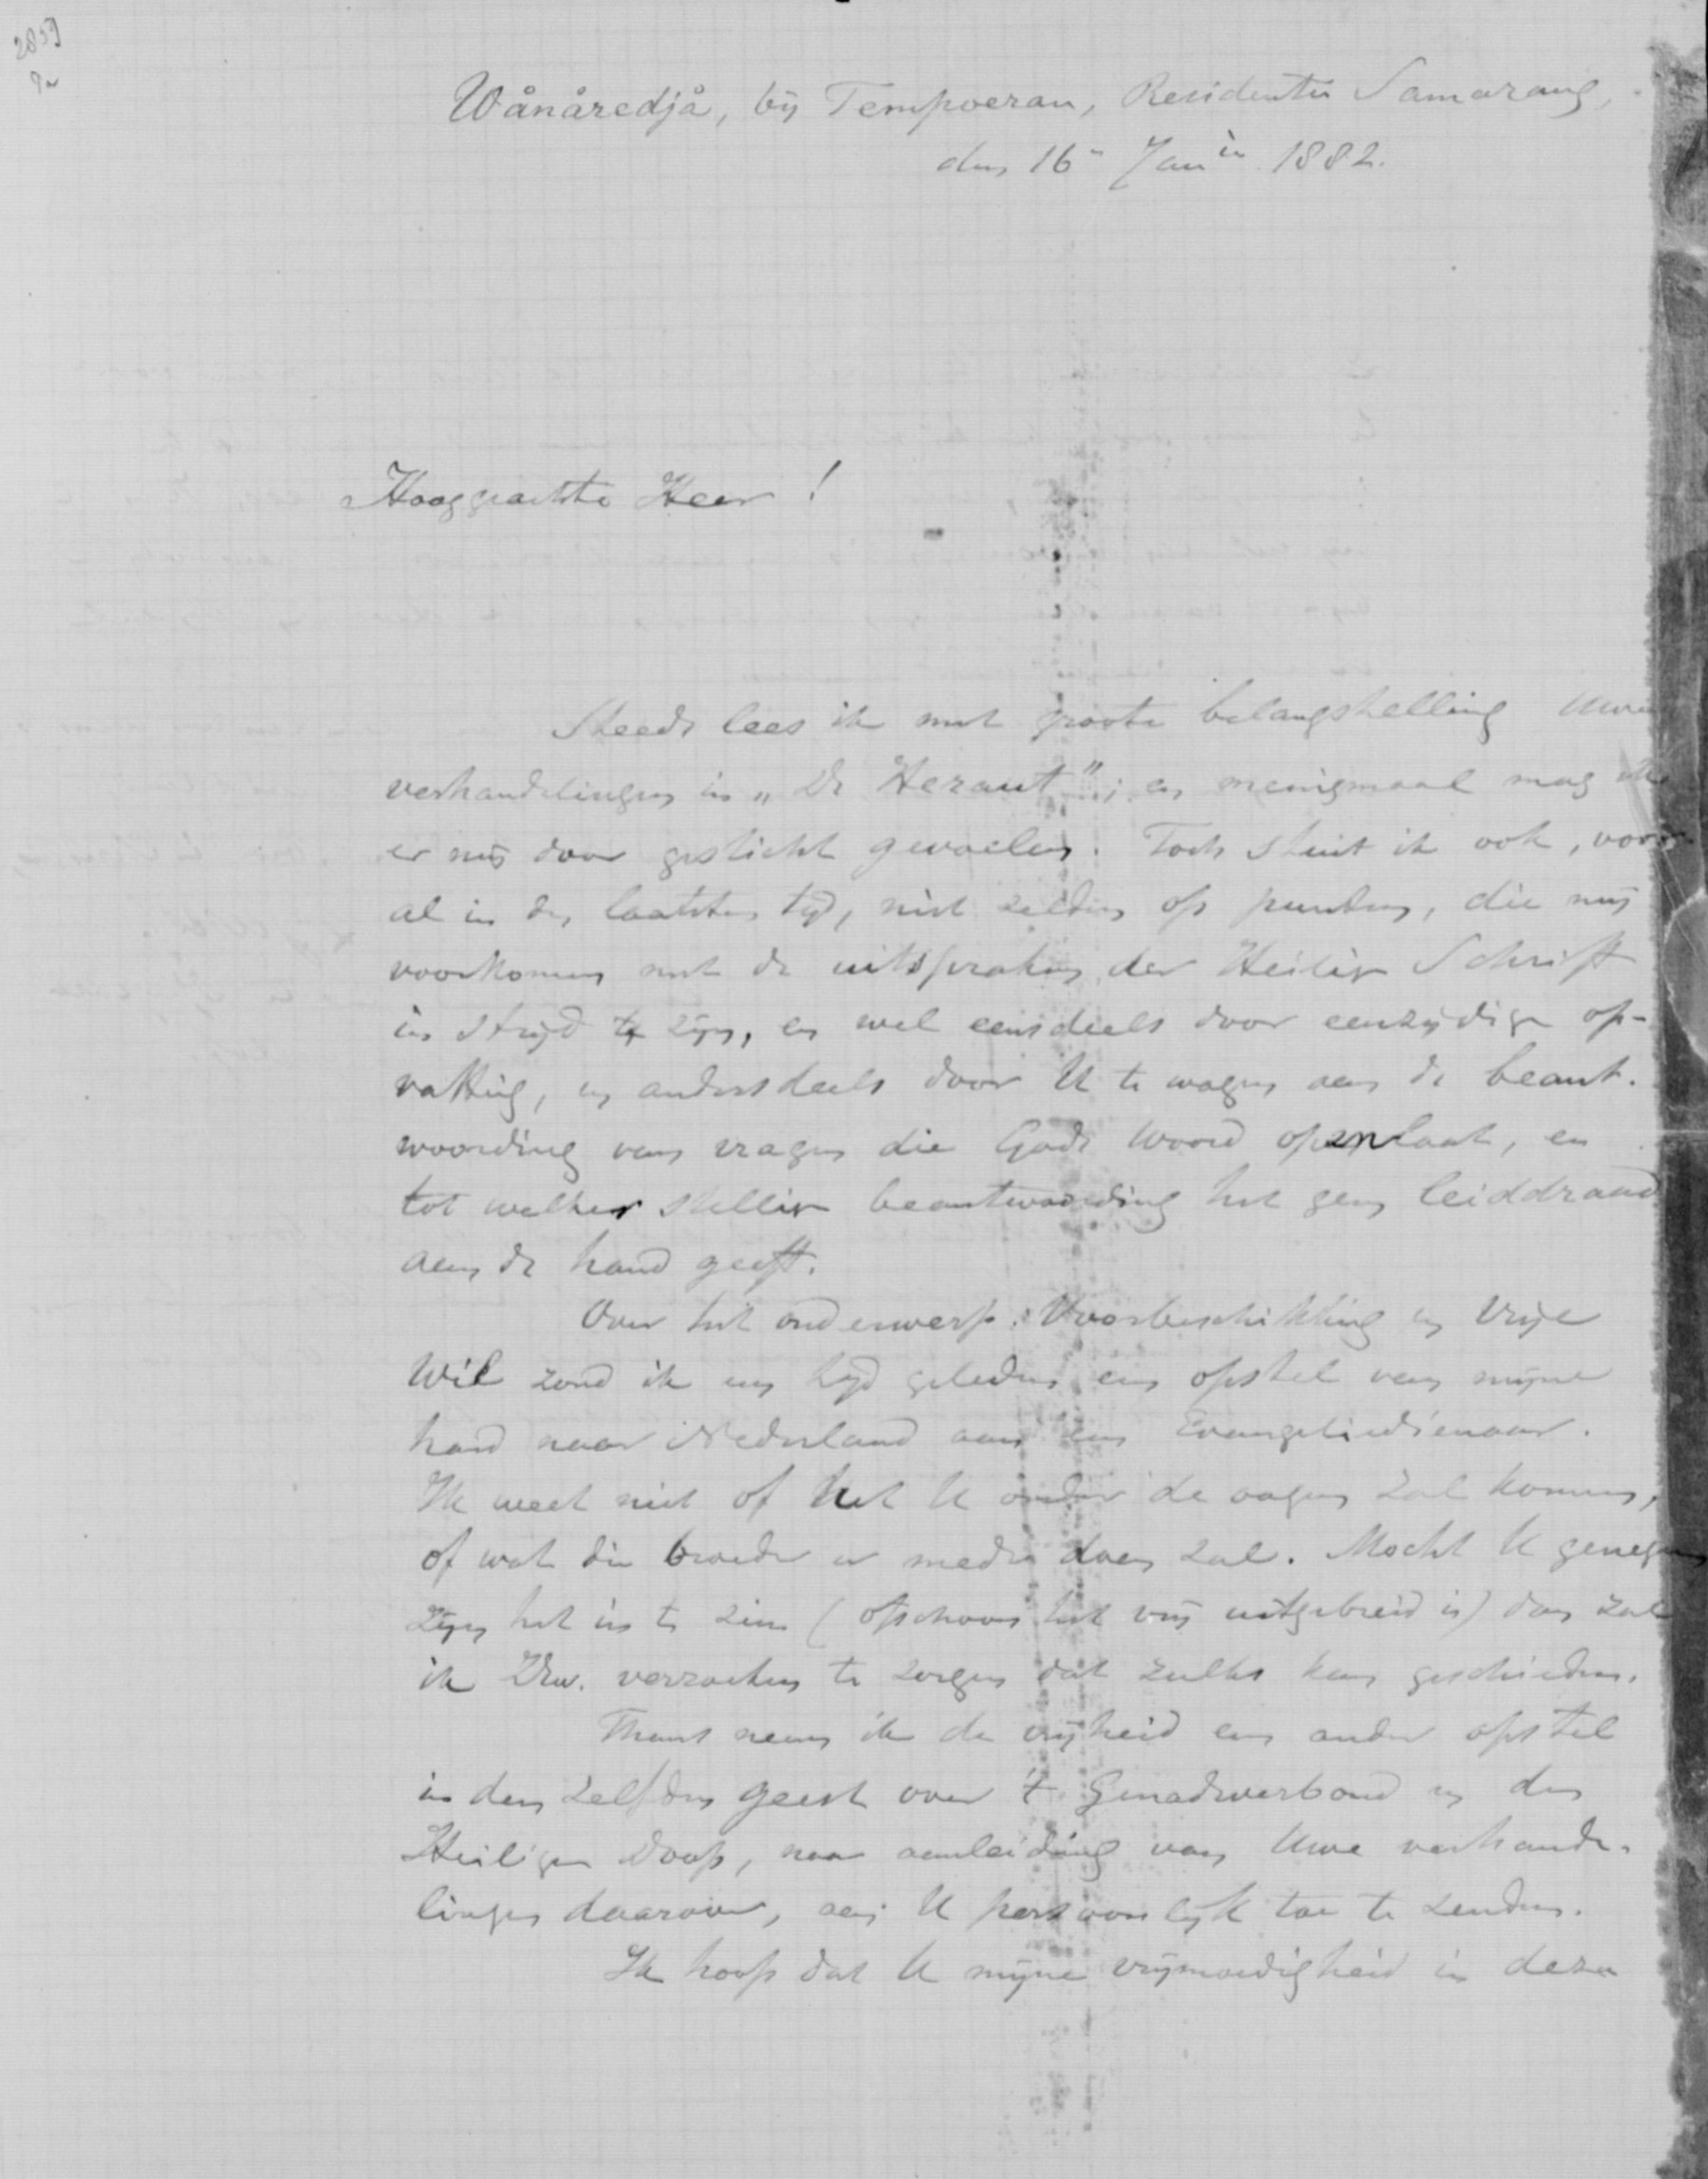 2859
Wånåredjå, bij Tempoeran, Residentie Samarang,
den 16n Januij 1882.
Hooggeachte Heer!
Steeds lees ik met groote belangstelling Uwe
verhandelingen in „De Heraut”; en menigmaal mag ik
er mij door gesticht gevoelen. Toch stuit ik ook, voor
al in den laatsten tijd, niet zelden op punten, die mij
voorkomen met de uitspraken der Heilige Schrift
in strijd te zijn, en wel eensdeels door eenzijdige op-
vatting, en andersdeels door U te wagen aan de beant-
woording van vragen die Gods Woord openlaat, en
tot welker stellige beantwoording het geen leiddraad
aan de hand geeft.
Over het onderwerp: Voorbeschikking en Vrije
Wil zond ik een tijd geleden een opstel van mijne
hand naar Nederland aan een Evangeliedienaar.
Ik weet niet of het U onder de oogen zal komen,
of wat die broeder er mede doen zal. Mocht U genegen
zijn het in te zien (ofschoon het vrij uitgebreid is) dan zal
ik ZEw. verzoeken te zorgen dat zulks kan geschieden.
Thans neem ik de vrijheid een ander opstel
in den zelfden geest over 't Genadeverbond en den
Heiligen Doop, naar aanleiding van Uwe verhande-
lingen daarover, aan U persoonlijk toe te zenden.
Ik hoop dat U mijne vrijmoedigheid in deze